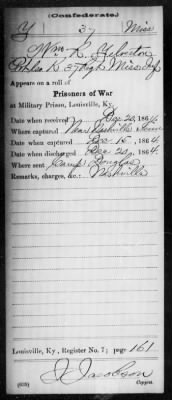 (Confederate.)
Y 37 Miss
Wm. R. Yelverton
Co. K 37 Regt. Miss. Inf
Appears on a roll of
Prisoners of War
at Military Prison, Louisville, Ky.
Date when received Dec 20, 1864
Where captured Near Nashville Tenn
Date when captured Dec 15, 1864
Date when discharged Dec 20, 1864.
Where sent Camp Douglas
Remarks, charges, &c.: Nashville
Louisville, Ky., Register No. 7; page 161
J. Jacobson
Copyist.